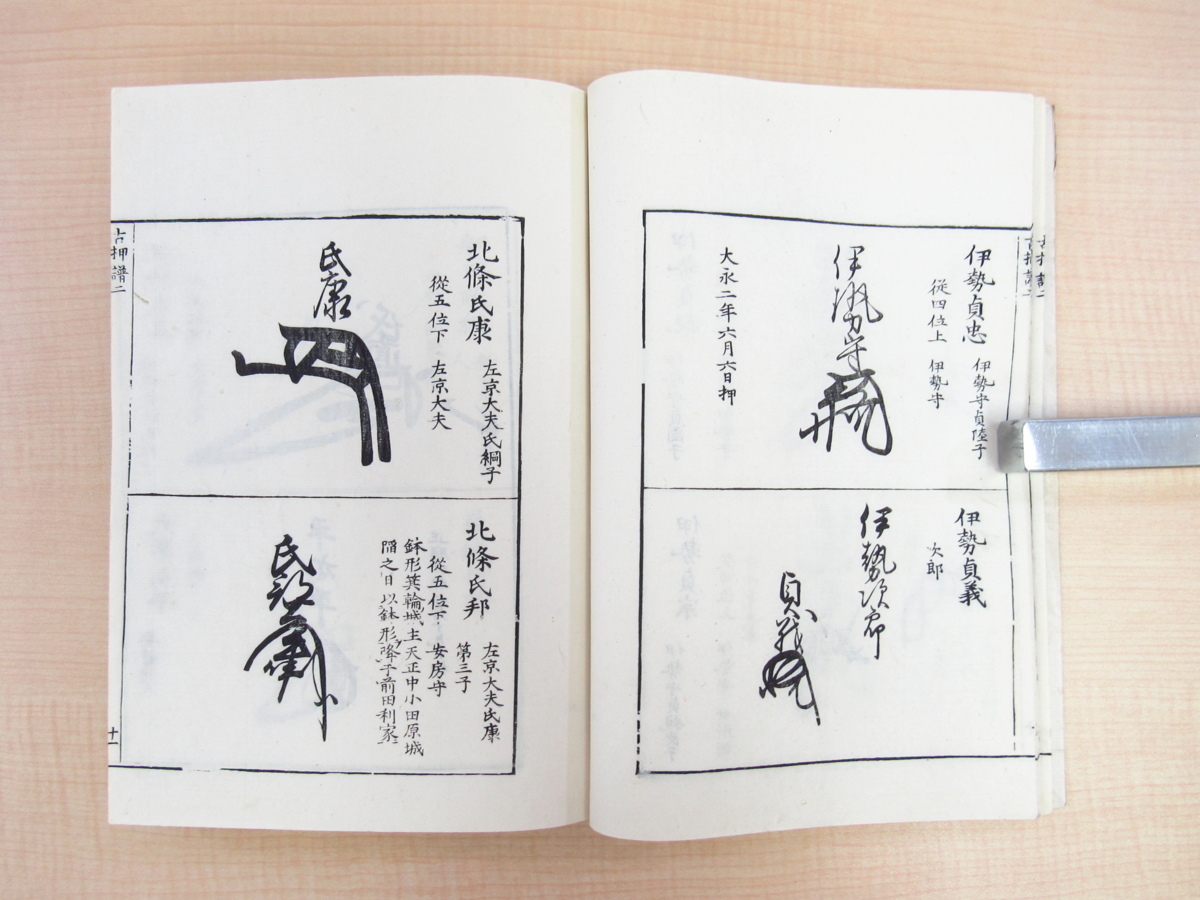 伊勢貞忠 伊勢守貞陸子
從四位上 伊勢守
伊勢守
大永二年六月六日押
伊勢貞義
次郎
伊勢次郎
貞義
北條氏康 左京大夫氏綱子
從五位下 左京大夫
氏康
北條氏邦 左京大夫氏康
第三子
從五位下 安房守
鉢形箕輪城主天正中小田原城
陷之日以鉢形降于前田利家
氏邦
古押譜二
十一